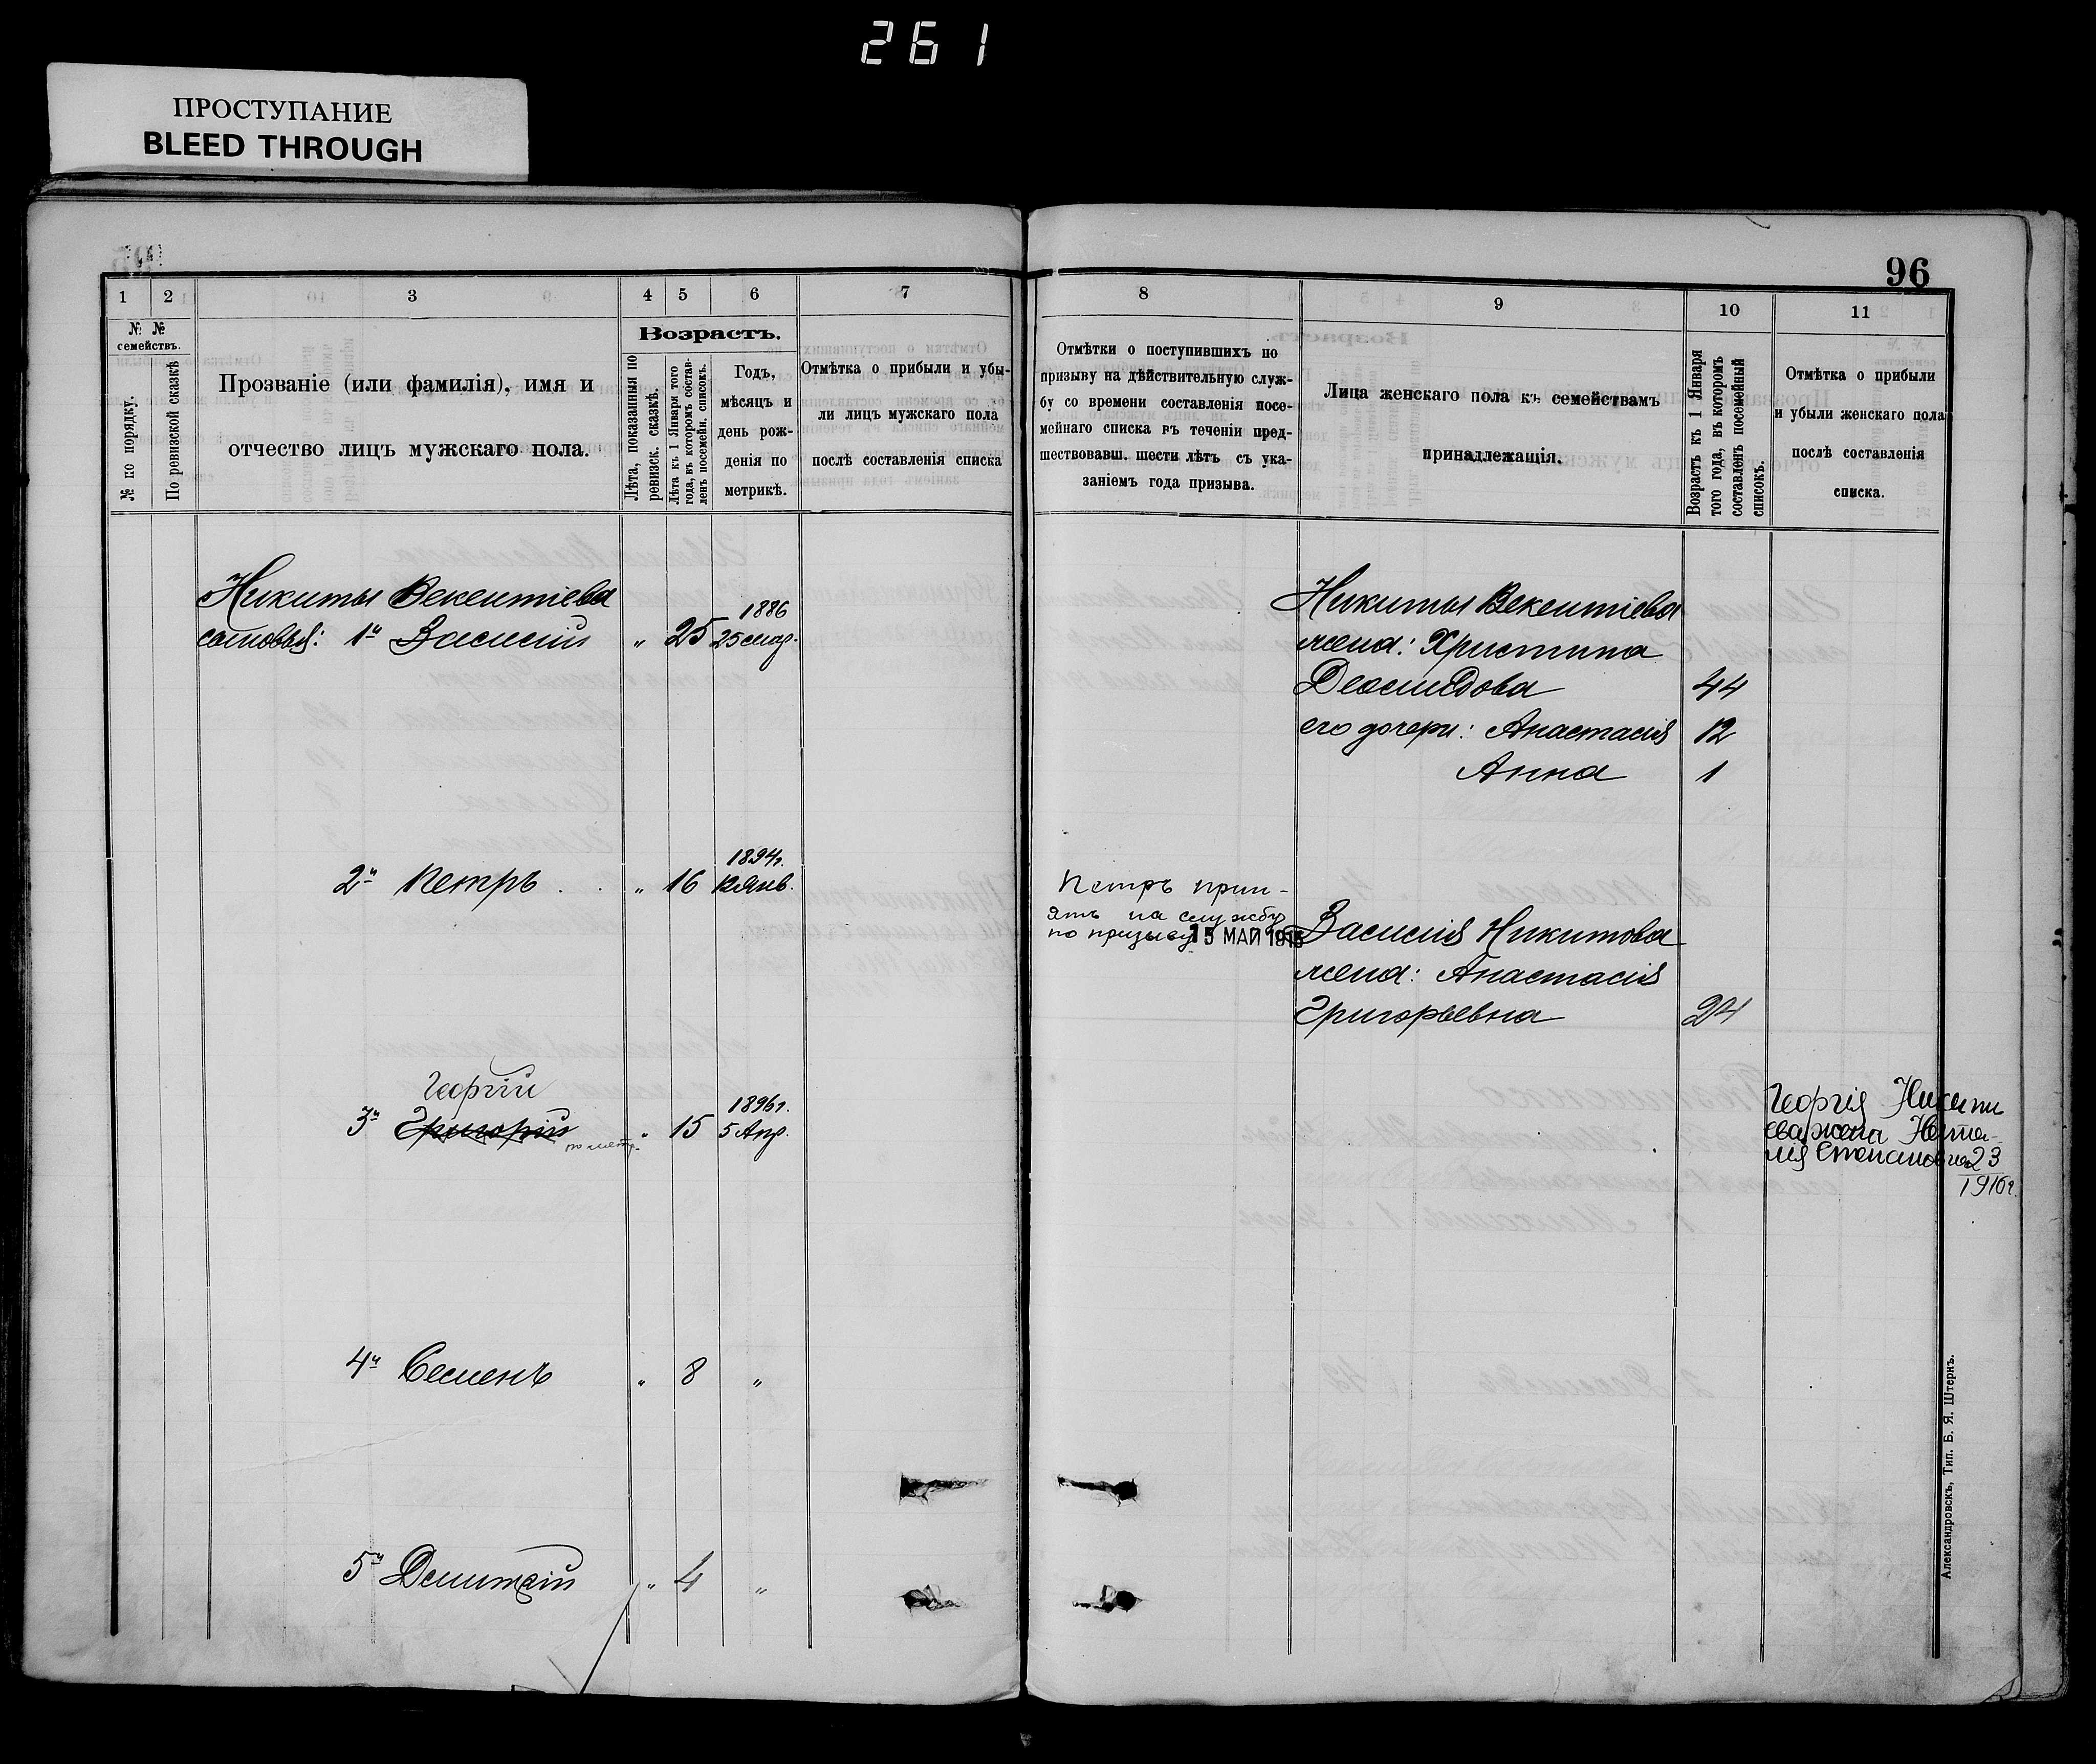 261
ПРОСТУПАНИЕ
BLEED THROUGH
96
1 2 3 4 5 6 7
№ №
семействъ.
№ по порядку.
По ревизской сказкѣ
Прозваніе (или фамилія), имя и
отчество лицъ мужскаго пола.
Возрастъ.
Лѣта, показанныя по
ревизск. сказкѣ.
Лѣта къ 1 Января того
года, въ которомъ состав-
ленъ посемейн. списокъ.
Годъ,
мѣсяцъ и
день рож-
денія по
метрикѣ.
Отмѣтка о прибыли и убы-
ли лицъ мужскаго пола
послѣ составленія списка
Никиты Векентіева
сыновья: 1й Василій " 25 1886
25
2й Петръ " 16 1894г.
12 Янв.
Георгій
3й Григорій по метр. " 15 1896г.
5 Апр.
4й Семенъ " 8 "
5й Димитрій " 4 "
8 9 10 11
Отмѣтки о поступившихъ по
призыву на дѣйствительную служ-
бу со времени составленія посе-
мейнаго списка въ теченіи пред-
шествовавш. шести лѣтъ съ ука-
заніемъ года призыва.
Лица женскаго пола къ семействамъ
принадлежащія.
Возрастъ къ 1 Января
того года, въ которомъ
составленъ посемейный
списокъ.
Отмѣтка о прибыли
и убыли женскаго пола
послѣ составленія
списка.
Никиты Векентіева
жена: Христина
44
его дочери: Анастасія 12
Анна 1
Петръ прин-
ятъ на службу
по призыву 15 МАЙ 1915
Василія Никитова
жена: Анастасія
Григорьевна 24
Георгія Никити
ева жена Ната-
лія Степановна 23
1916г.
Александровскъ, Тип. Б. Я. Штернъ.